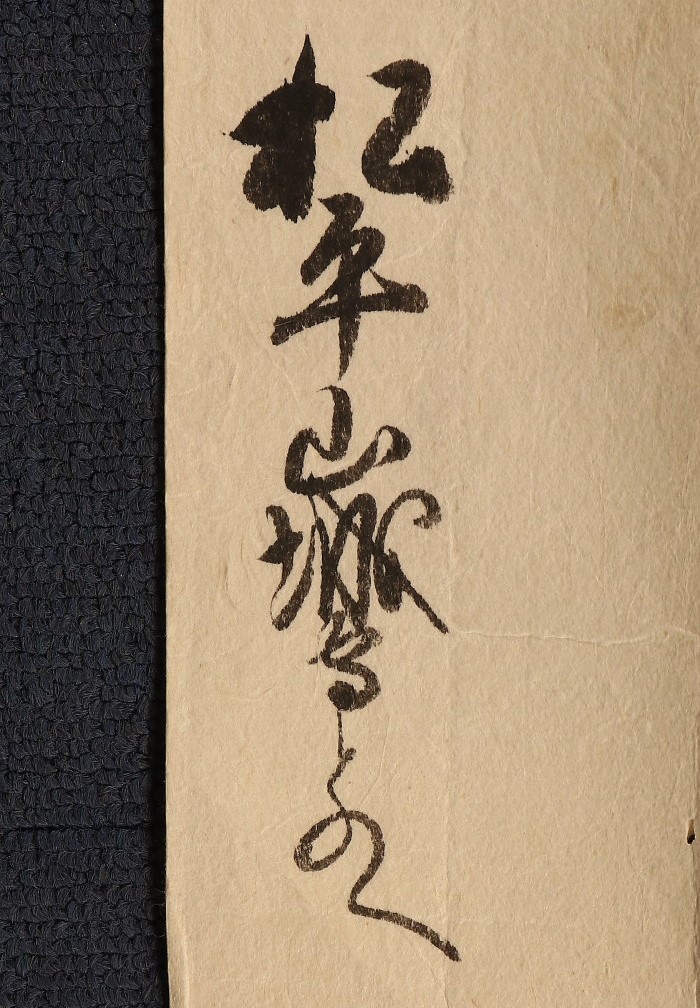 松平山城守とのへ